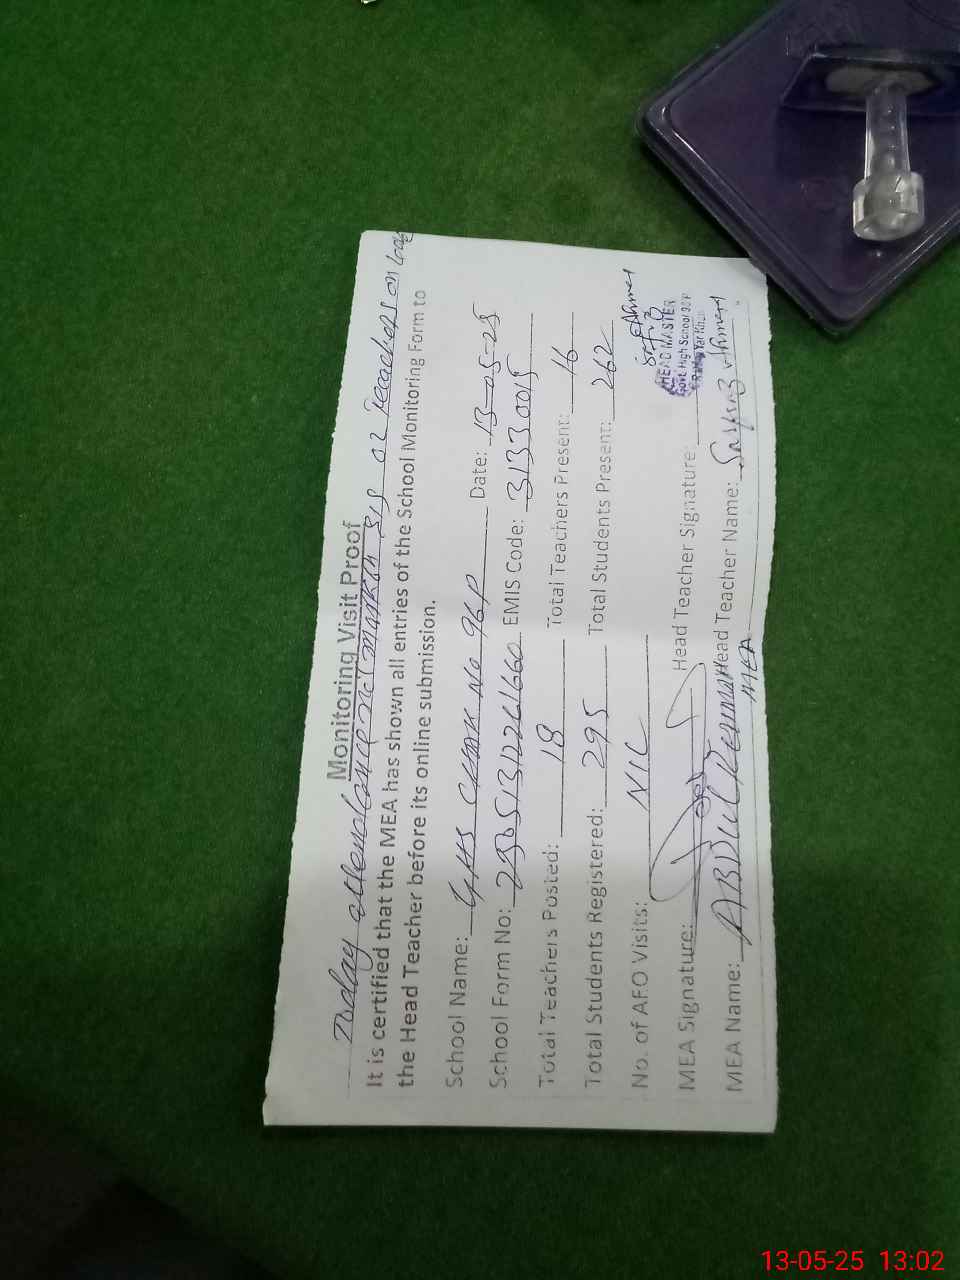 Monitoring Visit Proof
Today attendance not mark on SIS 02 Teachers on leave
It is certified that the MEA has shown all entries of the School Monitoring Form to
the Head Teacher before its online submission.
School Name: GHS CHAK No 96P Date: 13-05-25
School Form No: EMIS Code: 31330015
Total Teachers Posted: 18 Total Teachers Present: 16
Total Students Registered: 295 Total Students Present: 262
No. of AFO Visits: NIL
MEA Signature: Head Teacher Signature:
HEAD MASTER
Govt. High School
Rahim Yar Khan
MEA Name: ABDUL Head Teacher Name: Ahmed
MEA
13-05-25 13:02